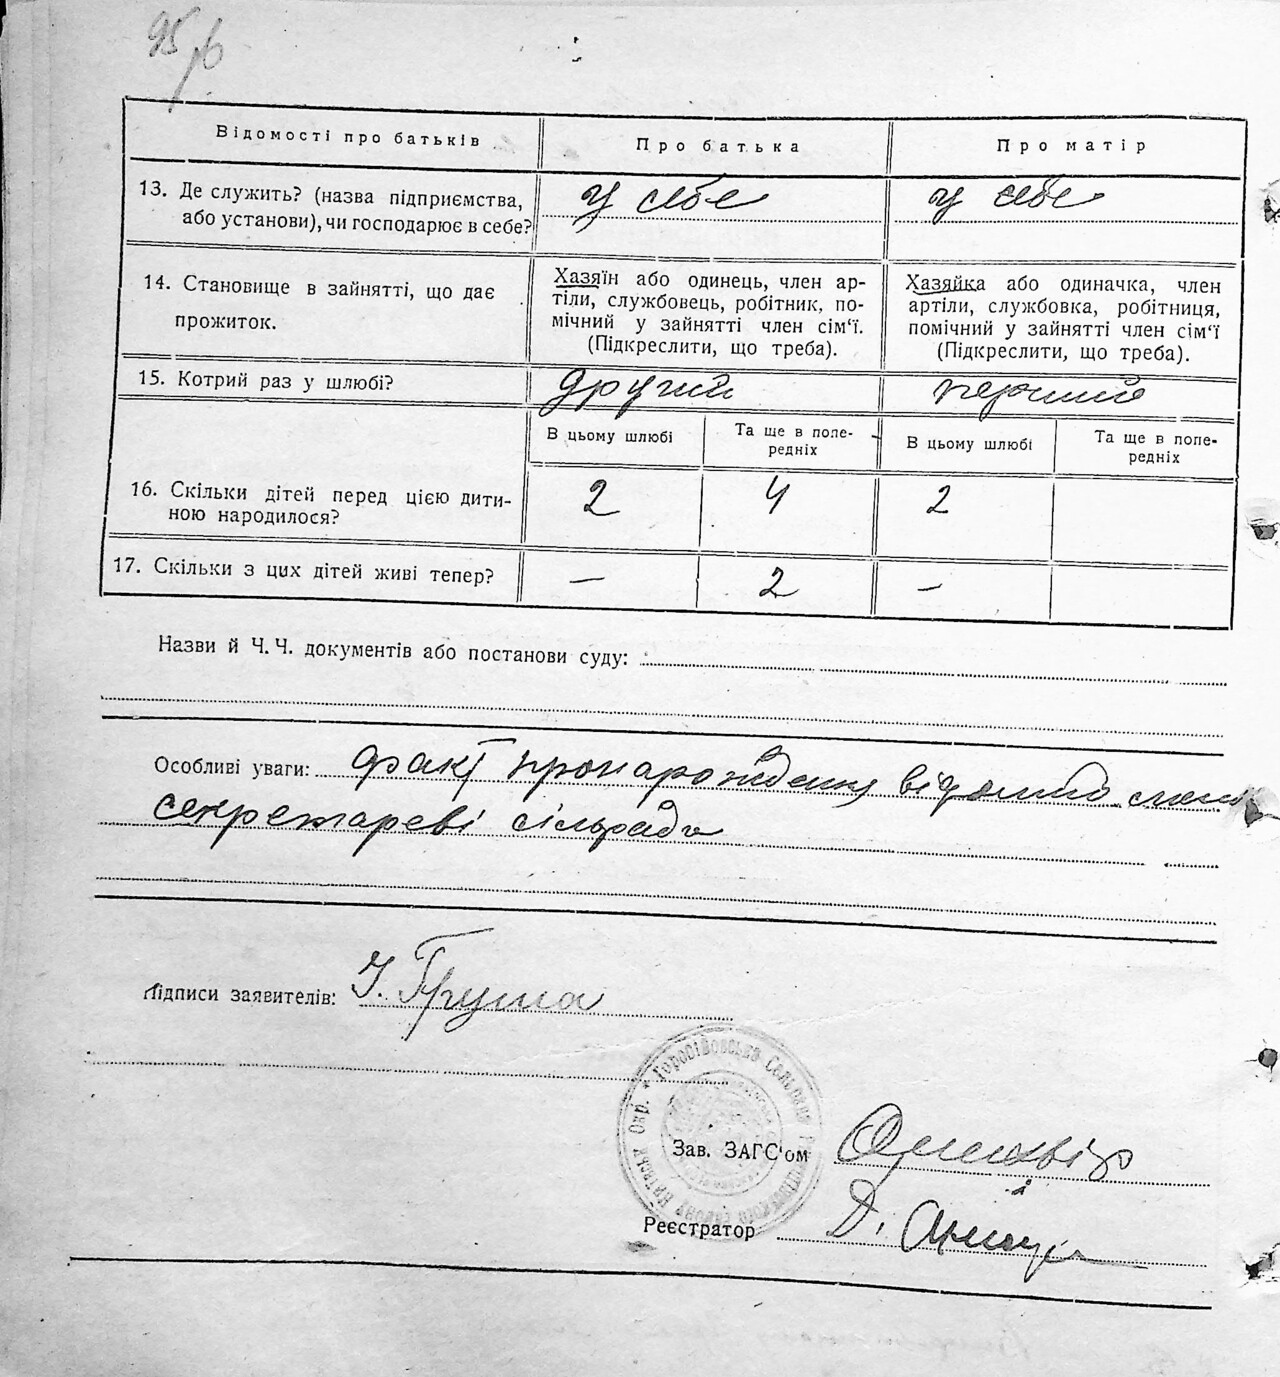 95
Відомості про батьків
Про батька
Про матір
13. Де служить? (назва підприємства,
або установи), чи господарює в себе?
у себе
у себе
14. Становище в зайнятті, що дає
прожиток.
Хазяїн або одинець, член ар-
тіли, службовець, робітник, по-
мічний у зайнятті член сім‘ї.
(Підкреслити, що треба).
Хазяйка або одиначка, член
артіли, службовка, робітниця,
помічний у зайнятті член сім‘ї
(Підкреслити, що треба).
15. Котрий раз у шлюбі?
другий
перший
В цьому шлюбі
Та ще в попе-
редніх
В цьому шлюбі
Та ще в попе-
редніх
16. Скільки дітей перед цією дити-
ною народилося?
2
4
2
17. Скільки з цих дітей живі тепер?
—
2
—
Назви й Ч. Ч. документів або постанови суду:
Особливі уваги: факт про народження відомий
секретареві сільради
Підписи заявителів: Груша
Зав. ЗАГС‘ом
Реєстратор Д.